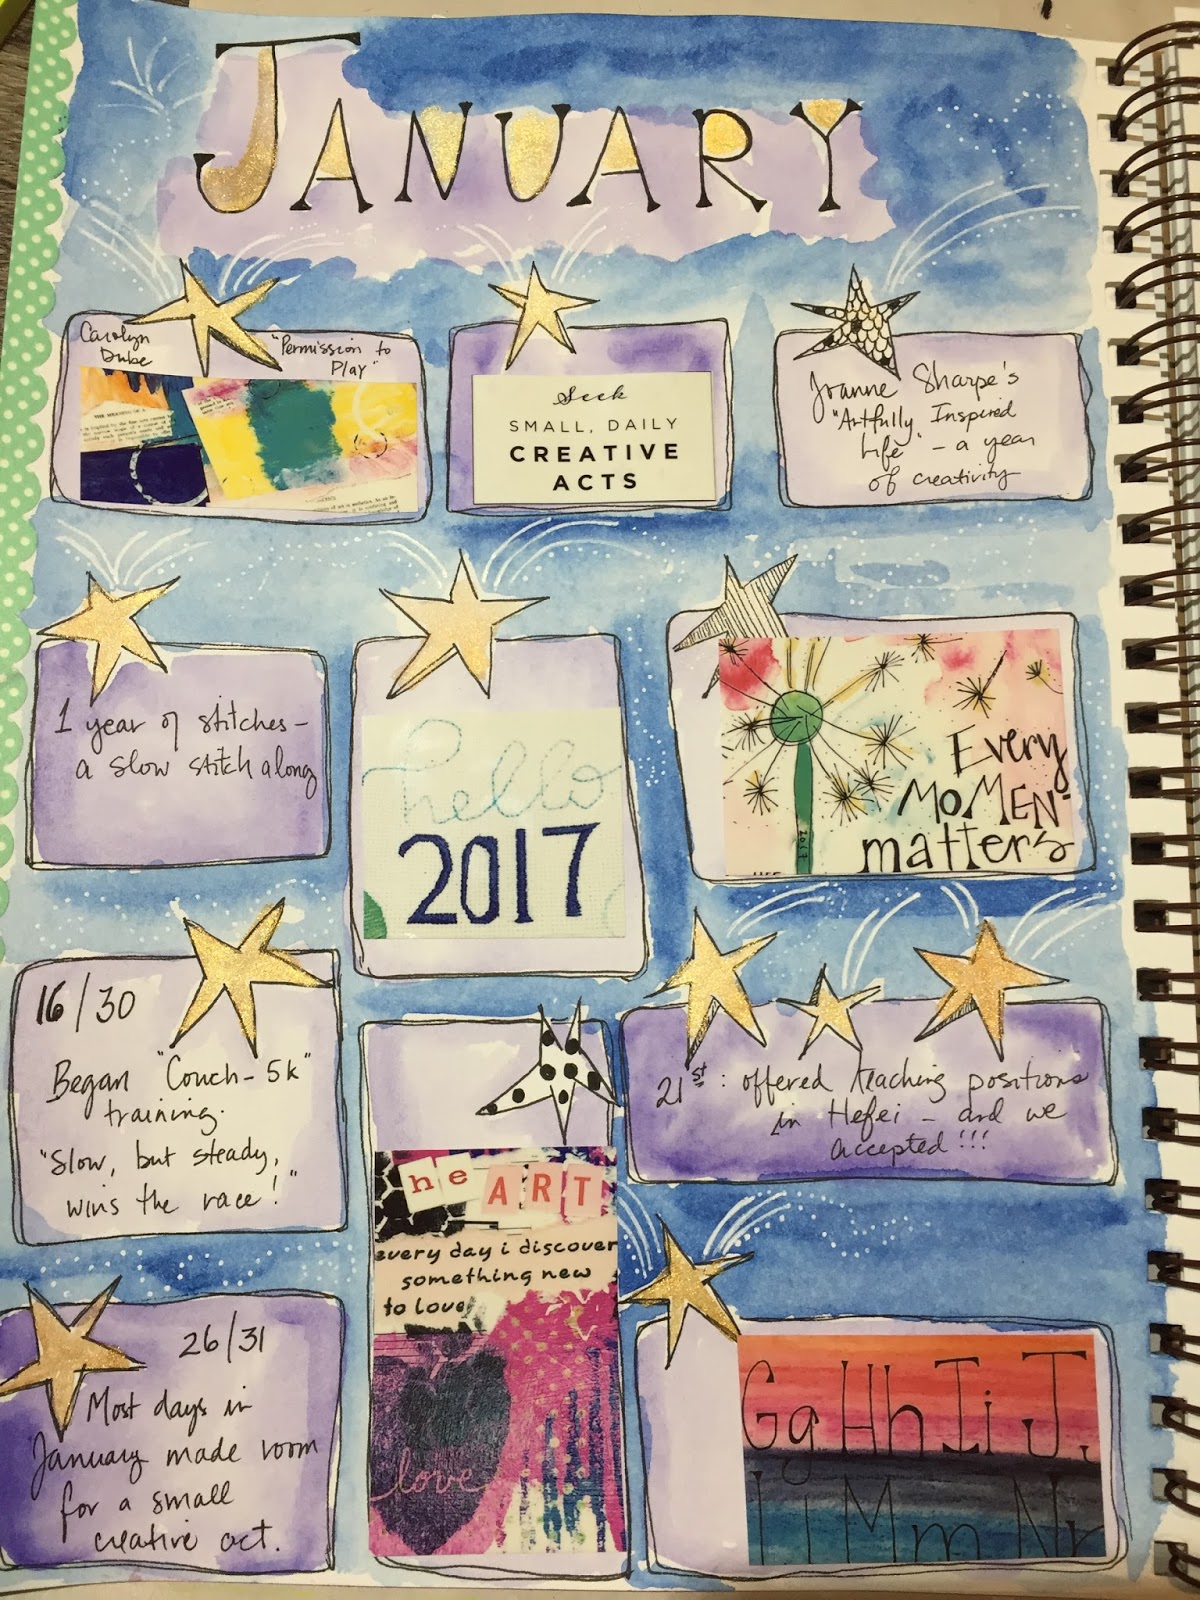 JANUARY
Carolyn
Dube
"Permission to
Play"
Seek
SMALL, DAILY
CREATIVE
ACTS
Joanne Sharpe's
"Artfully Inspired
Life" - a year
of creativity
1 year of stitches -
a slow stitch along
hello
2017
Every
MoMENT
matters
2017
16/30
Began "Couch-5k"
training.
"Slow, but steady,
wins the race!"
21st: offered teaching positions
in Hefei - and we
accepted!!!
heART
every day i discover
something new
to love
love
26/31
Most days in
January made room
for a small
creative act.
Gg Hh Ii J
Mm N